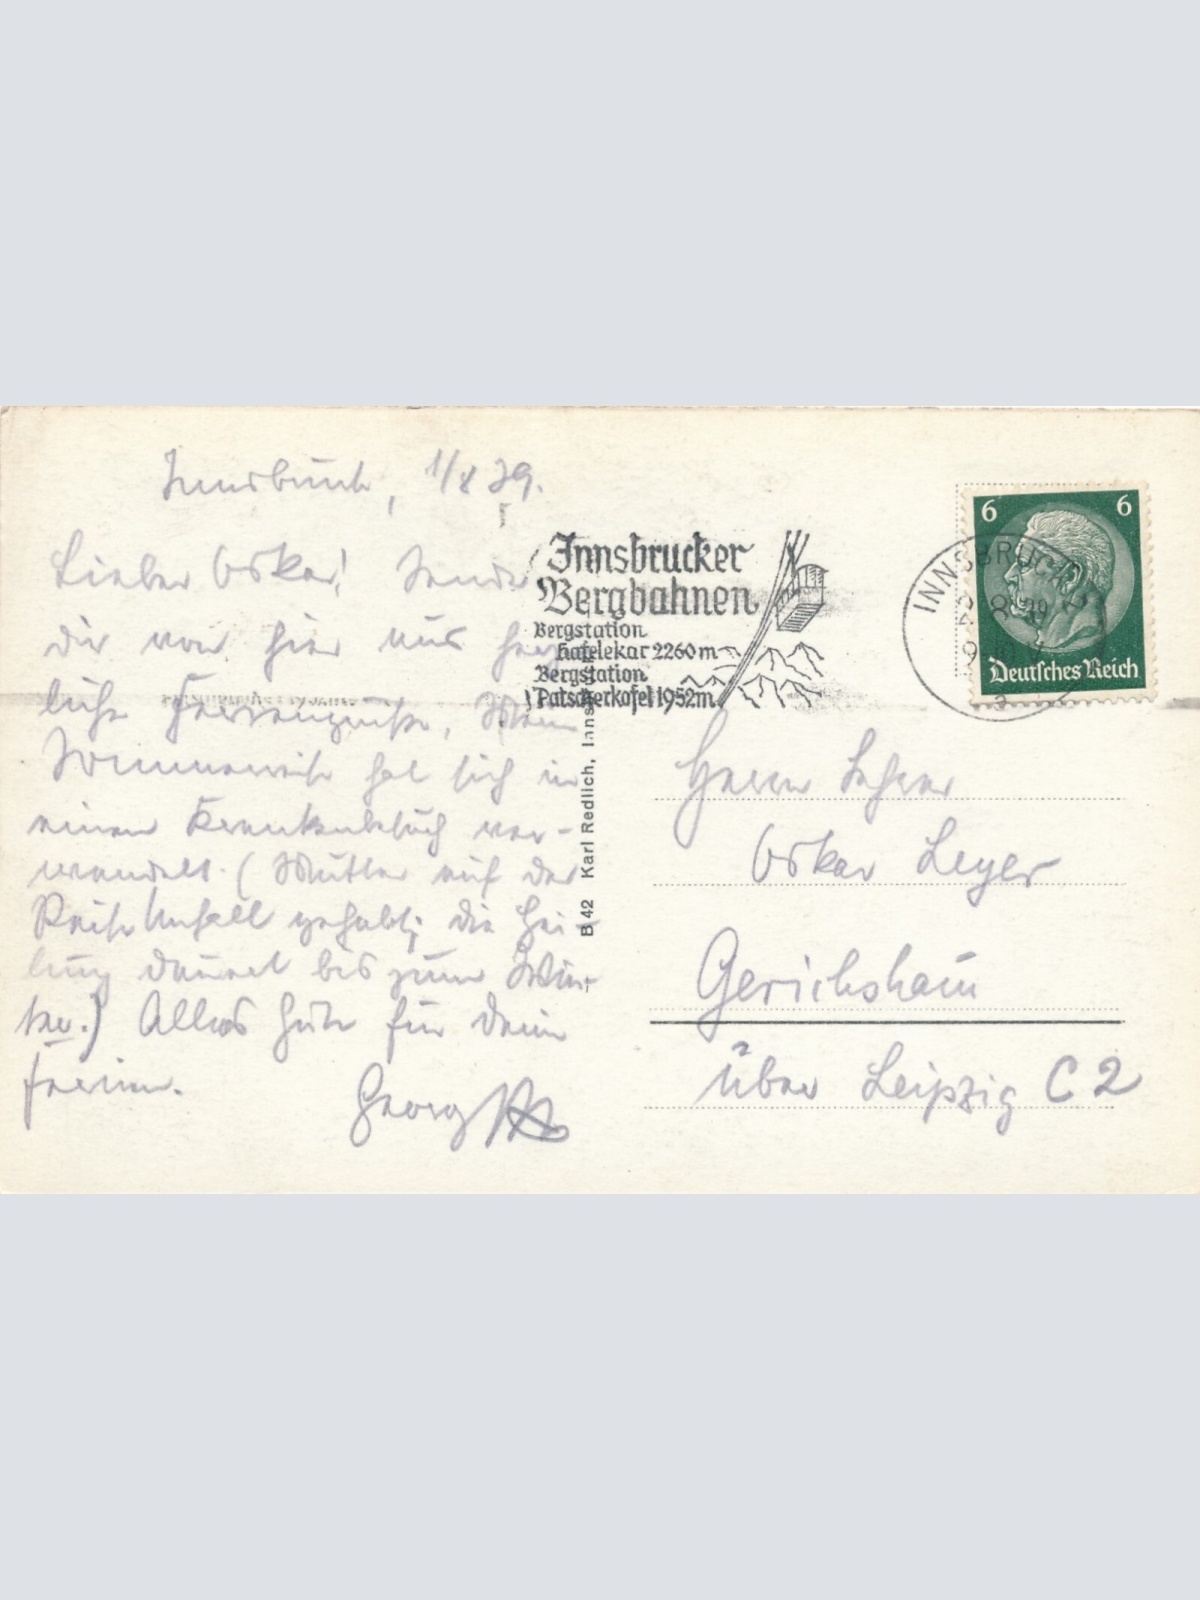 Innsbruck, 1/8 39.
Lieber Oskar! Sende
dir von hier nur herz
liche Feriengrüße, Mein
Sommerreise hat sich in
einen Krankenbesuch ver-
wandelt. (Mutter auf der
Reise Unfall gehabt; die Hei-
lung dauert bis zum Win-
ter.) Alles Gute für deine
Ferien.
Georg
Innsbrucker
Bergbahnen
Bergstation
Hafelekar 2260m
Bergstation
Patscherkofel 1952m
B 42 Karl Redlich, Innsbruck
6 6
Deutsches Reich
INNSBRUCK 2
2.8.39
9
Herrn Lehrer
Oskar Leyer
Gerichshain
über Leipzig C2